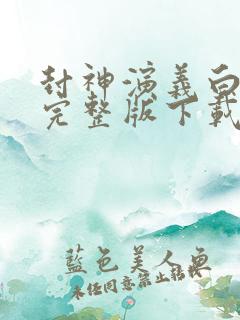 封神演義白
完整版下載
藍色美人魚
未經同意禁止轉載